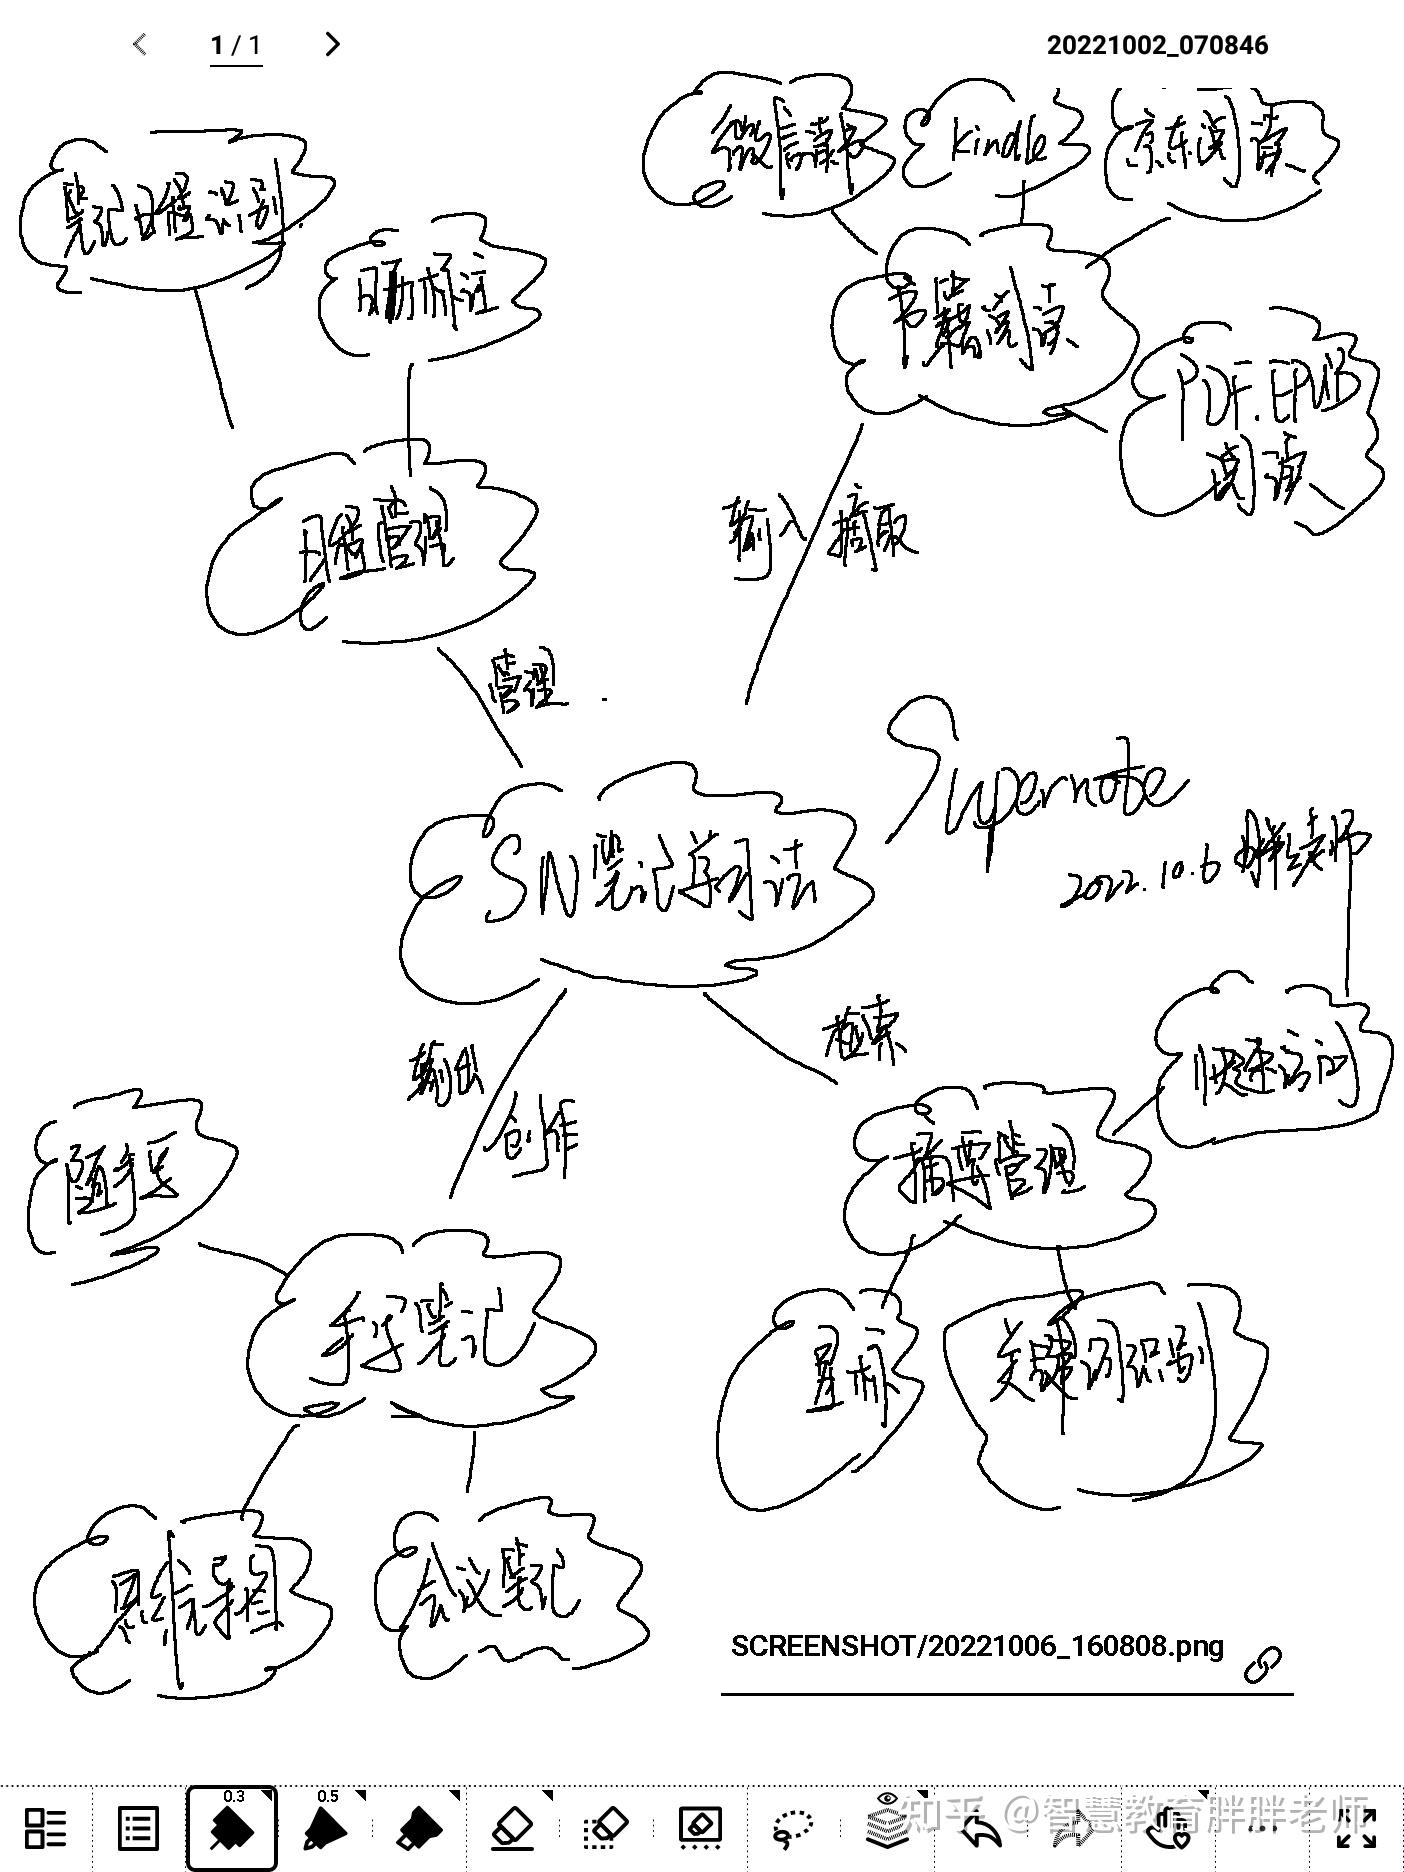 1 / 1
20221002_070846
微信读书
Kindle
京东阅读
笔记日程识别
书籍阅读
PDF.EPUB
阅读
日程管理
输入 摘取
管理
Supernote
SN笔记学习法
2022.10.6 胖老师
检索
快速访问
输出
创作
摘要管理
随手写
手写笔记
星标
关键词识别
思维导图
会议笔记
SCREENSHOT/20221006_160808.png
0.3
0.5
知乎 @智慧教育胖胖老师